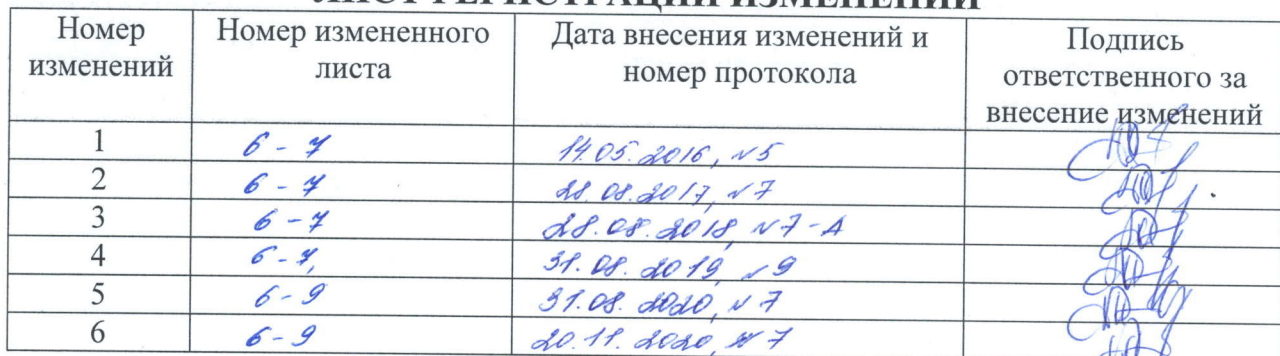 ЛИСТ РЕГИСТРАЦИИ ИЗМЕНЕНИЙ
Номер изменений | Номер измененного листа | Дата внесения изменений и номер протокола | Подпись ответственного за внесение изменений
1 | 6 - 7 | 14.05.2016, №5
2 | 6 - 7 | 28.08.2017, №7
3 | 6 - 7 | 28.08.2018, №7-А
4 | 6 - 7, | 31.08.2019, №9
5 | 6 - 9 | 31.08.2020, №7
6 | 6 - 9 | 20.11.2020, №7